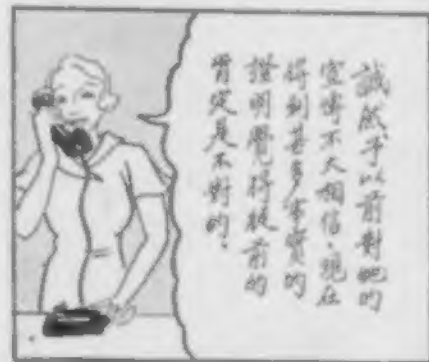 誠然予以前對他的
宣傳不大相信，現在
得到甚多事實的
證明覺得從前的
肯定是不對的．